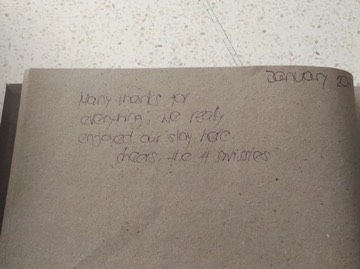 January 20
Many thanks for
everything, we really
enjoyed our stay here.
cheers, the 4 swissies